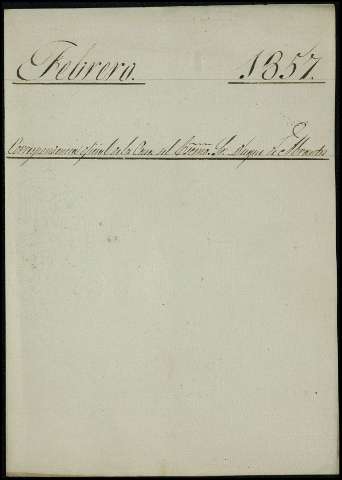 Febrero. 1857.
Correspondencia oficial de la Casa del Excmo. Sr. Duque de Abrantes